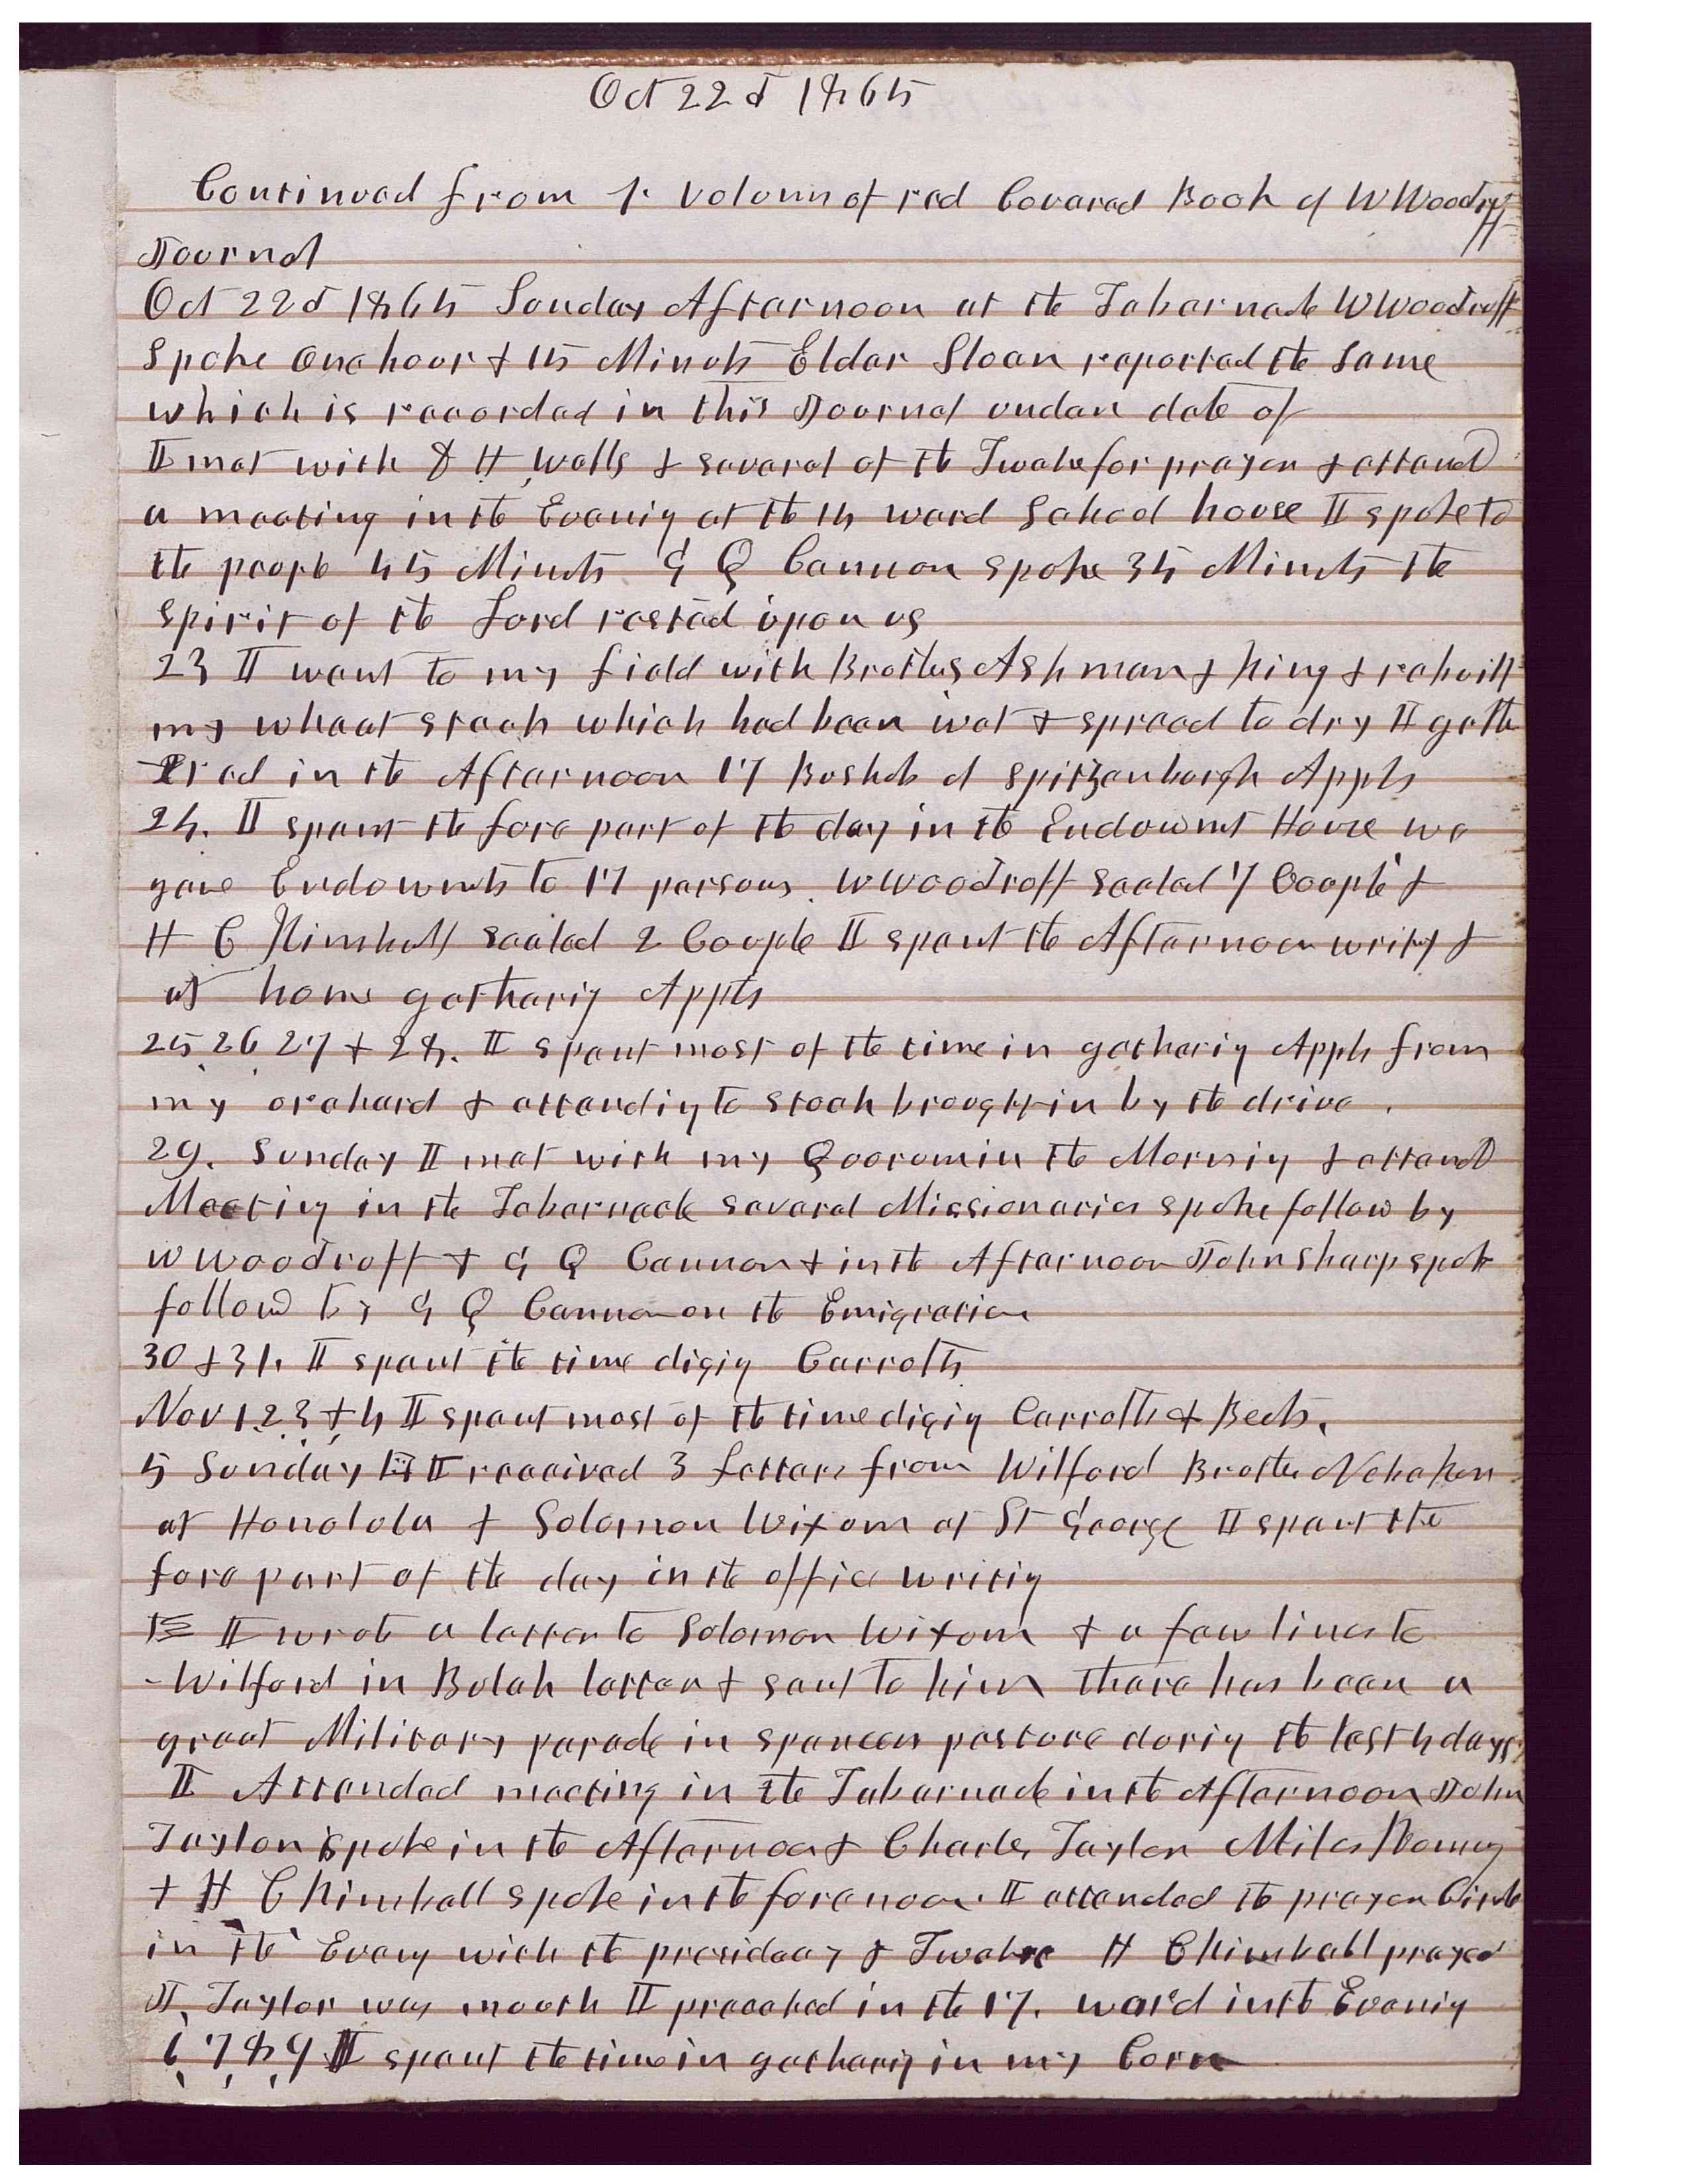 Oct 22d 1865
Continued from 1. volumn of red Covered Book of W Woodruff
Journal
Oct 22d 1865 Sunday Afternoon at the Tabernacle W Woodruff
Spoke one hour & 15 Minuts Elder Sloan reported the same
which is recorded in this Journal under date of
I met with D H Wells & several of the Twelve for prayer & attend
a meeting in the Evenig at the 14 ward School house I spoke to
the people 45 Minuts G Q Cannon spoke 35 Minuts the
spirit of the Lord rested upon us
23 I went to my field with Brothers Ashman & King & rebuilt
my wheat stack which had been wet & spread to dry I gathe
-ered in the Afternoon 17 Bushels of spitzenburgh Apples
24. I spent the fore part of the day in the Endowmt House we
gave Endowmts to 17 persons. W Woodruff sealed 7 Couple &
H C Kimball sealed 2 Couple I spent the Afternoon writig &
at home gatherig Apples
25, 26, 27 & 28. I spent most of the time in gatherig Apples from
my orchard & attendig to stock brought in by the drive.
29. Sunday I met with my Quorum in the Mornig & attend
Meetig in the Tabernacle several Missionaries spoke follow by
W Woodruff & G Q Cannon & in the Afternoon John Sharp spoke
follow by G Q Cannon on the Emigration
30 & 31. I spent the time digig Carrotts
Nov 1, 2, 3, & 4 I spent most of the time digig Carrotts & Beets.
5 Sunday I received 3 Letters from Wilford Brother
at Honolulu & Solomon Wixom at St George I spent the
fore part of the day in the office writig
I wrote a letter to Solomon Wixom & a few lines to
-Wilford in Bulah letter & sent to him there has been a
great Military parade in spancer pasture durig the last 4 days,
I Attended meeting in the Tabernacle in the Afternoon John
Taylor spoke in the Afternoon & Charles Taylor Miles Romney
& H C Kimball spoke in the forenoon. I attended the prayer Circle
in the Eveng with the presidency & Twelve H C Kimball prayed
J. Taylor was mouth I preached in the 17. ward in the Evenig
6, 7, 8, 9 I spent the time in gatherig in my Corn